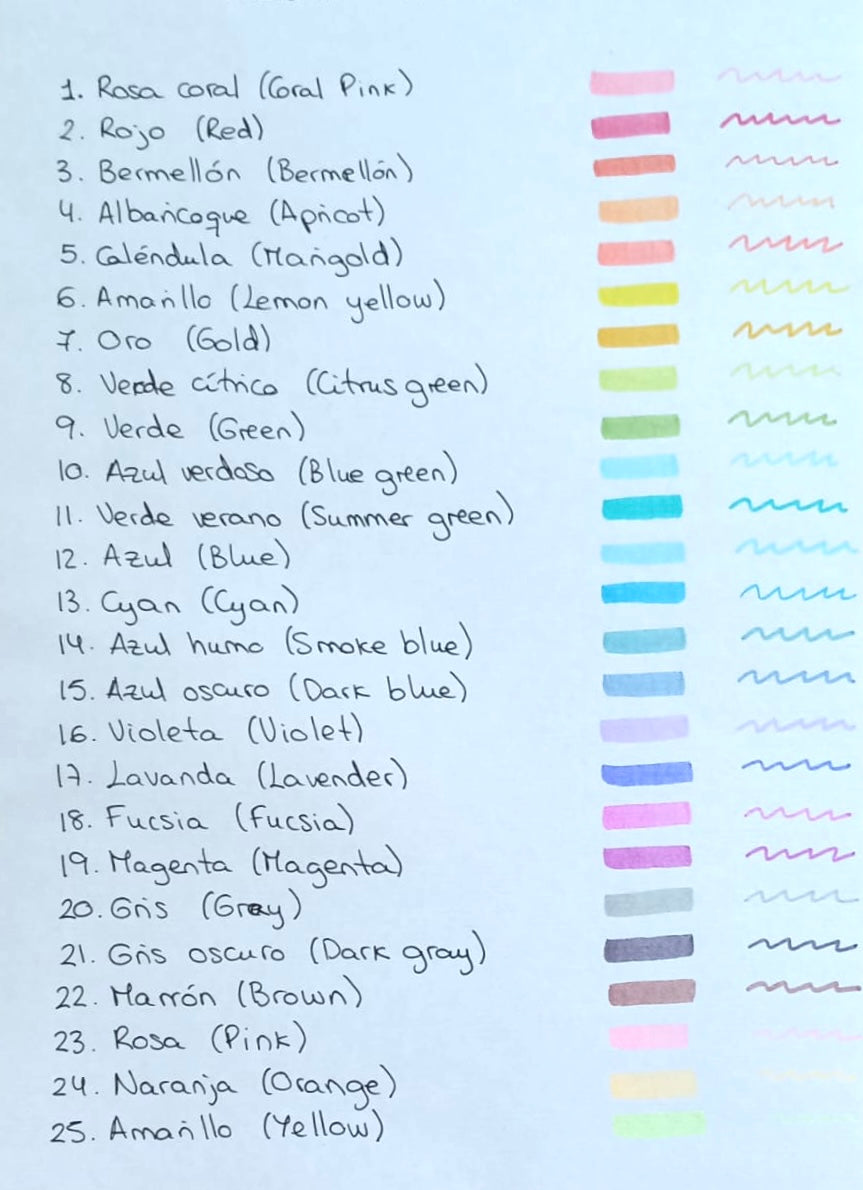 1. Rosa coral (Coral Pink)
2. Rojo (Red)
3. Bermellón (Bermellón)
4. Albaricoque (Apricot)
5. Caléndula (Marigold)
6. Amarillo (Lemon yellow)
7. Oro (Gold)
8. Verde cítrico (Citrus green)
9. Verde (Green)
10. Azul verdoso (Blue green)
11. Verde verano (Summer green)
12. Azul (Blue)
13. Cyan (Cyan)
14. Azul humo (Smoke blue)
15. Azul oscuro (Dark blue)
16. Violeta (Violet)
17. Lavanda (Lavender)
18. Fucsia (Fucsia)
19. Magenta (Magenta)
20. Gris (Gray)
21. Gris oscuro (Dark gray)
22. Marrón (Brown)
23. Rosa (Pink)
24. Naranja (Orange)
25. Amarillo (Yellow)